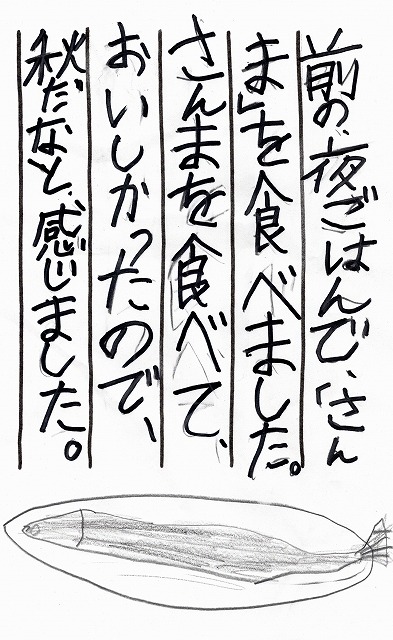 前の、夜ごはんで、「さん
ま」を食べました。
さんまを食べて、
おいしかったので、
秋だなと、感じました。